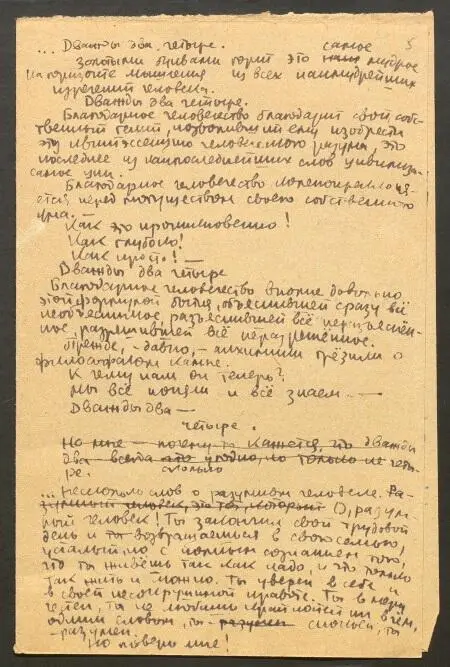 ... Дважды два, четыре. самое 5
Золотыми буквами горит это мудрое
на горизонте мышления из всех наимудрейших
изречений человека.
Дважды два четыре.
Благодарное человечество благодарит свой соб-
ственный гений, позволивший ему изобрести
эту квинтэссенцию человеческого разума, это
последнее из наипоследнейших слов цивилиза-
самое ции.
Благодарное человечество коленопреклоня-
ется перед могуществом своего собственного
ума. —
Как это проникновенно!
Как глубоко!
Как просто! —
Дважды два четыре
Благодарное человечество вполне довольно
этой формулой бытия, объяснившей сразу всё
необъяснимое, разъяснившей всё неразъяснён-
ное, разрешившей всё неразрешённое.
Прежде, - давно, - алхимики грезили о
философском камне.
К чему нам он теперь?
Мы всё поняли и всё знаем. —
Дважды два —
четыре.
Но мне — почему-то кажется, что дважды
два — всегда что угодно, но только не четы-
ре. сколько
... Несколько слов о разумном человеке. Ра-
зумный человек, это тот, который О, разум-
ный человек! Ты закончил свой трудовой
день и ты возвращаешься в свою семью,
усталый но, с полным сознанием того,
что ты живёшь так как надо, и что только
так жить и можно. Ты уверен в себе и
в своей несокрушимой правоте. Ты в меру
ты не любишь крайностей ни в чём,
одним словом, ты - разумен ты
- разумен.
Но поверь мне!